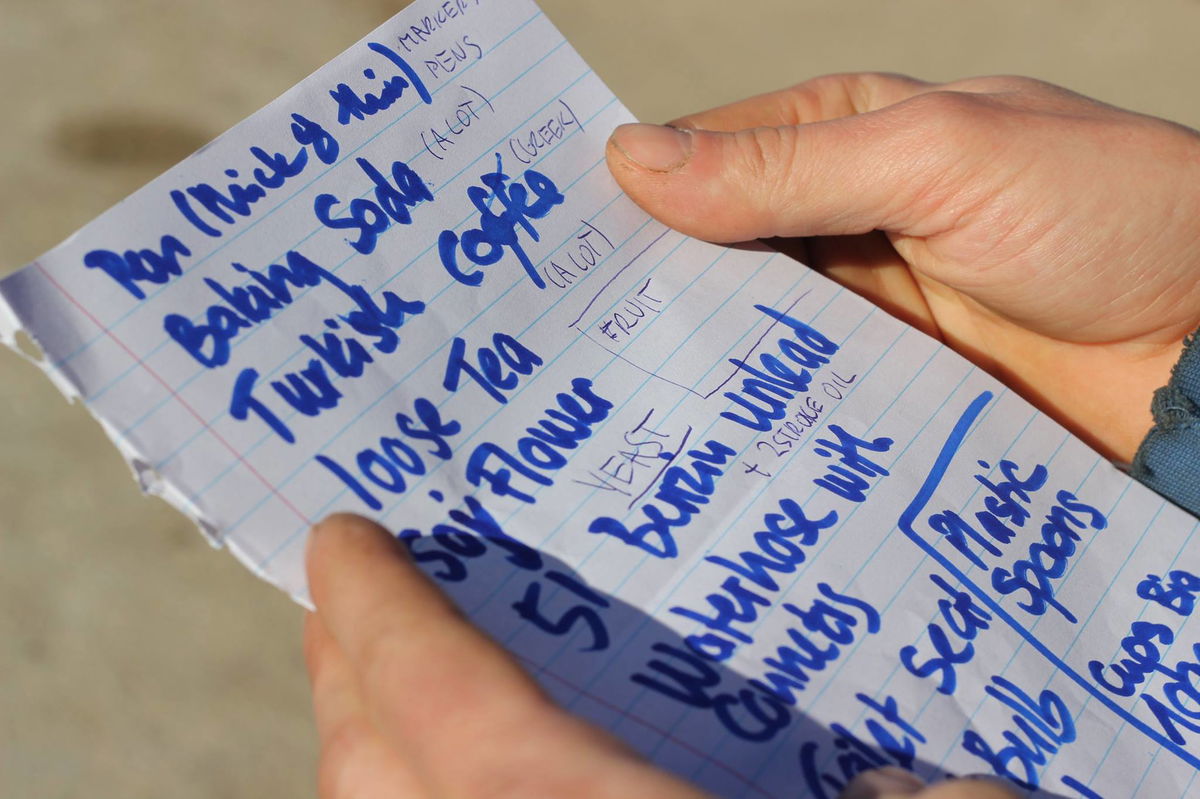 Pen (thick & thin) MARKER
PENS
Baking Soda (A LOT)
Turkish Coffee (GREEK)
loose Tea (A LOT)
FRUIT
Soy Flower YEAST
5l Benzin unlead
+ 2STROKE OIL
Waterhose with
Connects
Toilet Seat
Bulb
Plastic
Spoons
Cups Big